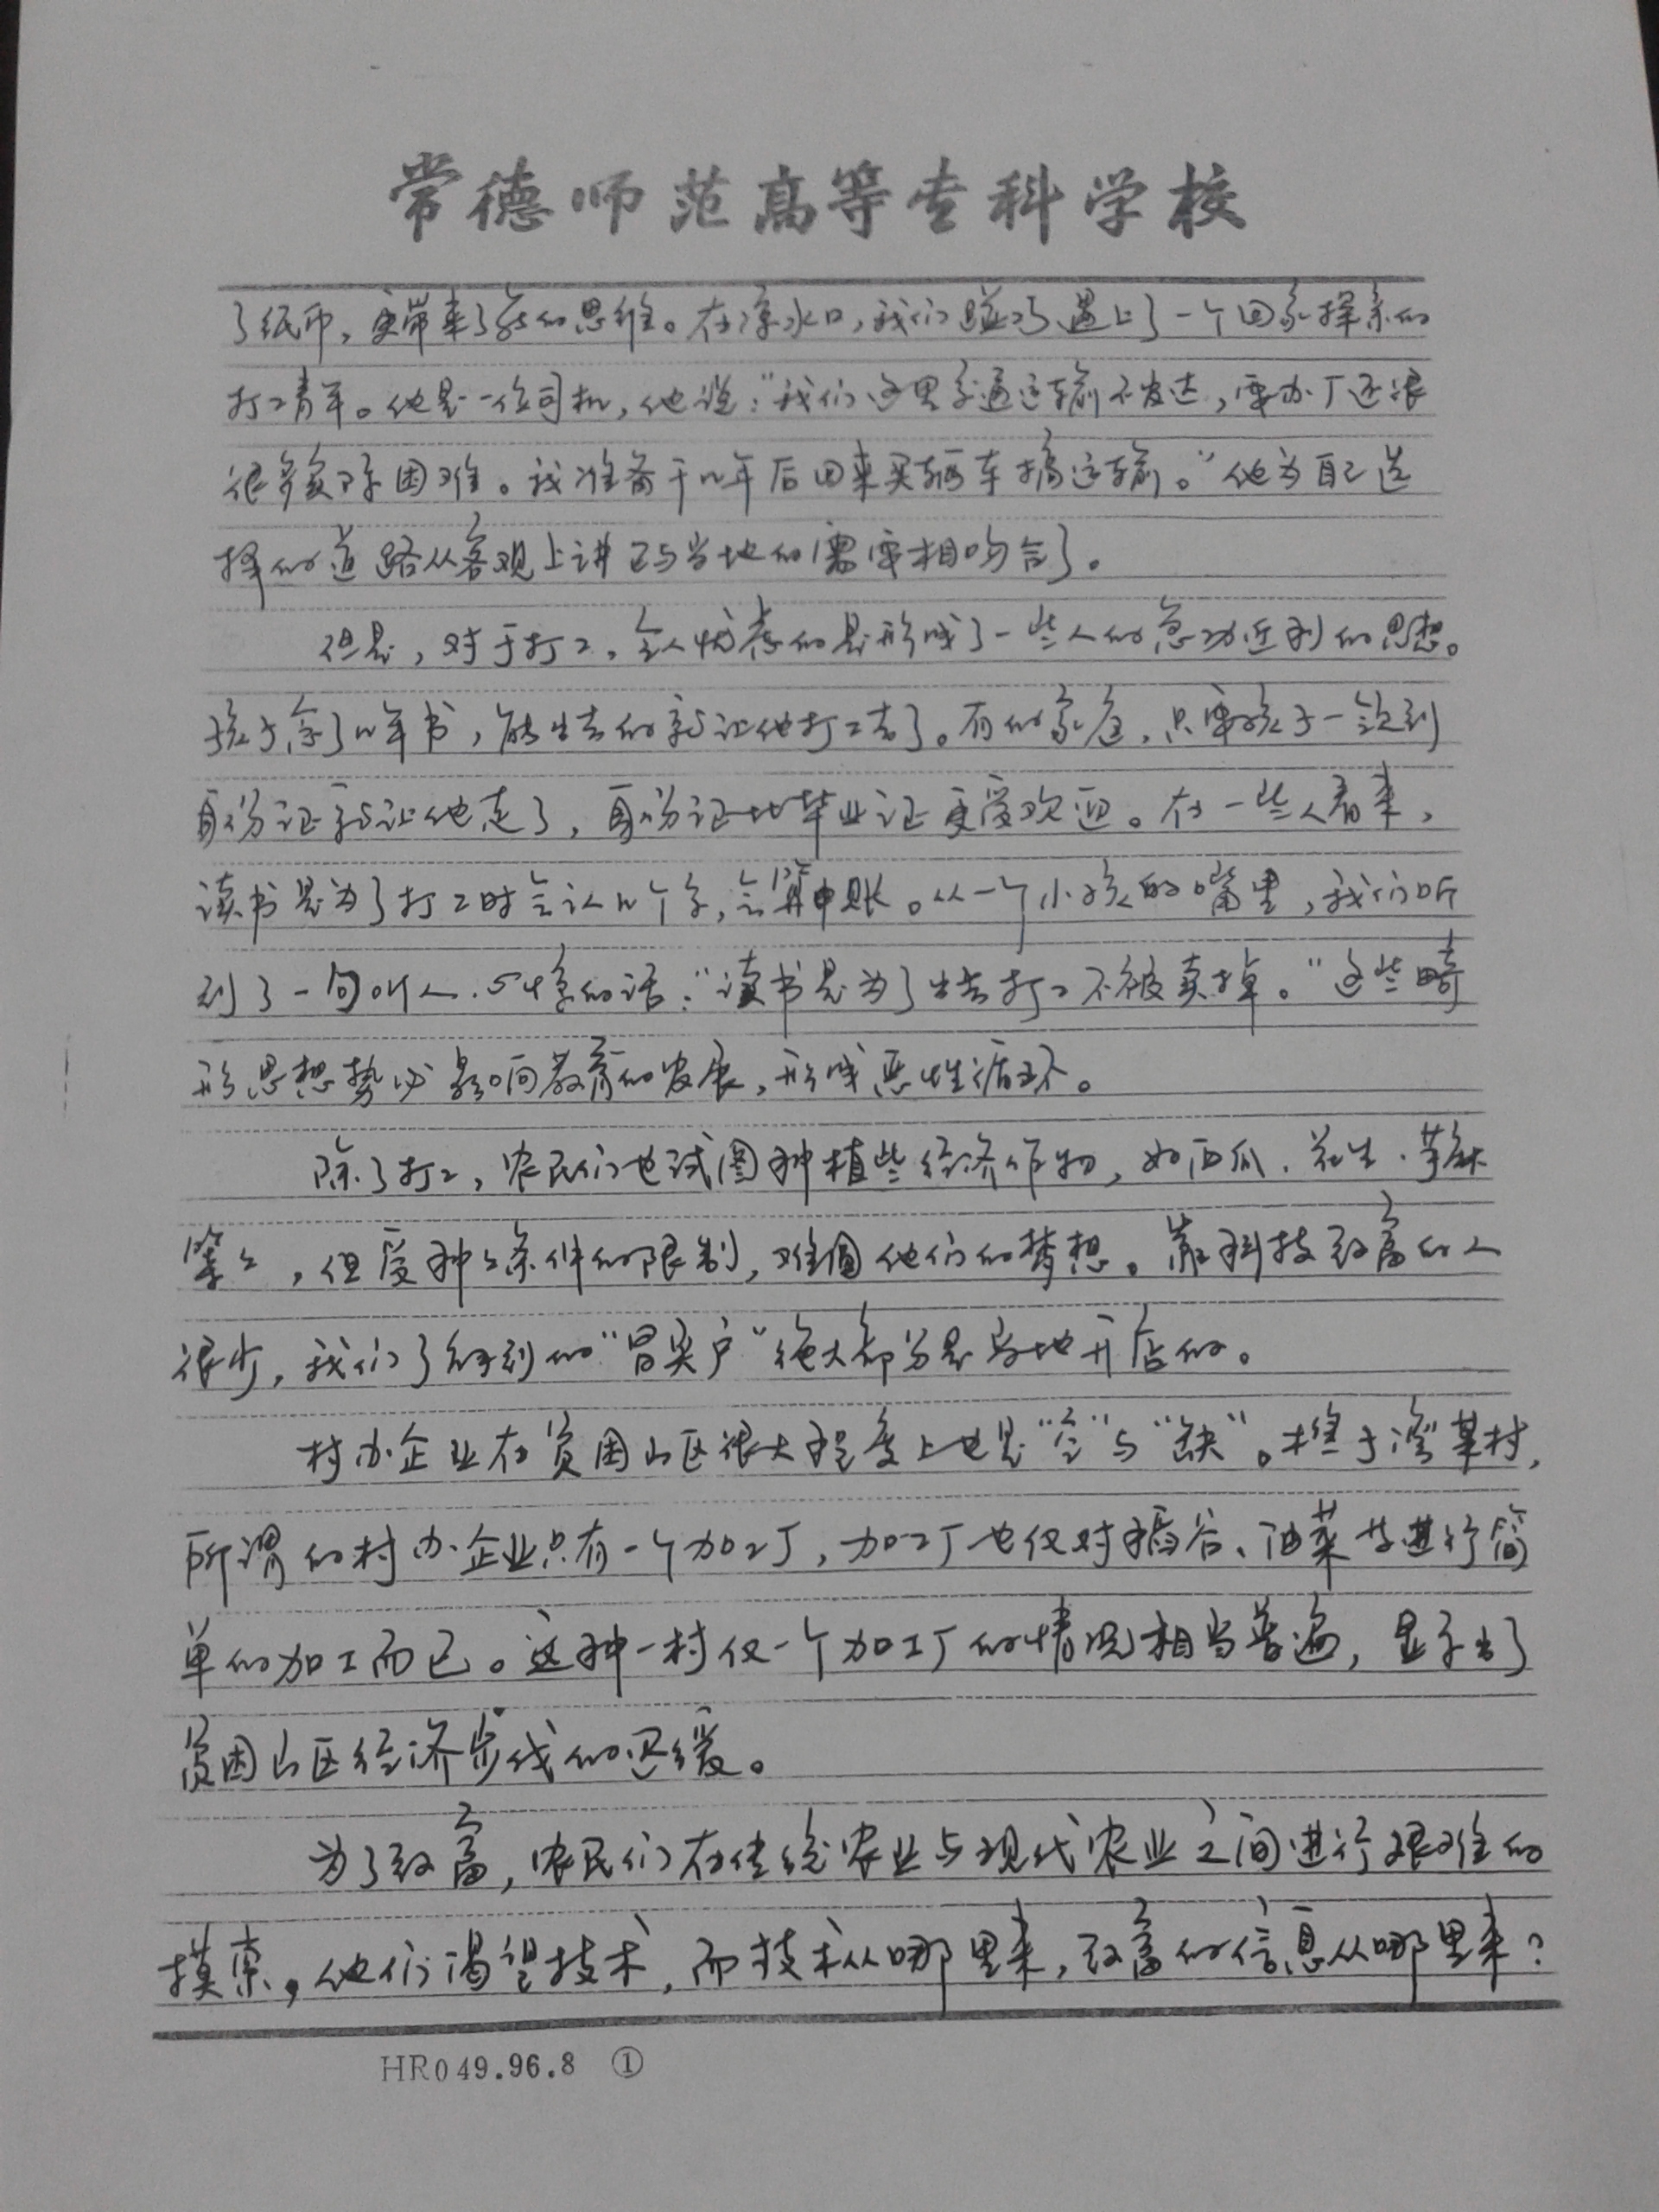 常德师范高等专科学校
了纸币，更带来了新的思维。在凉水口，我们碰巧遇上了一个回家探亲的
打工青年。他是一位司机，他说：“我们这里交通运输不发达，要办厂还很
很多实际困难。我准备干几年后回来买辆车搞运输。”他为自己选
择的道路从客观上讲正与当地的需要相吻合了。
但是，对于打工，令人忧虑的是形成了一些人的急功近利的思想。
孩子念了几年书，能出去的就让他打工去了。有的家庭，只要孩子一领到
身份证就让他走了，身份证比毕业证更受欢迎。在一些人看来，
读书是为了打工时会认几个字，会算笔账。从一个小孩的嘴里，我们听
到了一句叫人心悸的话：“读书是为了出去打工不被卖掉。”这些畸
形思想势必影响教育的发展，形成恶性循环。
除了打工，农民们也试图种植些经济作物，如西瓜、花生、苎麻
等等，但受种种条件的限制，难圆他们的梦想。靠科技致富的人
很少，我们了解到的“冒尖户”绝大部分是当地开店的。
村办企业在贫困山区很大程度上也是“空”与“缺”。 湾 村，
所谓的村办企业只有一个加工厂，加工厂也仅对稻谷、油菜 进行简
单的加工而已。这种一村仅一个加工厂的情况相当普遍，显示出了
贫困山区经济步伐的迟缓。
为了致富，农民们在传统农业与现代农业之间进行艰难的
摸索，他们渴望技术，而技术从哪里来，致富的信息从哪里来？
HR049.96.8 ①